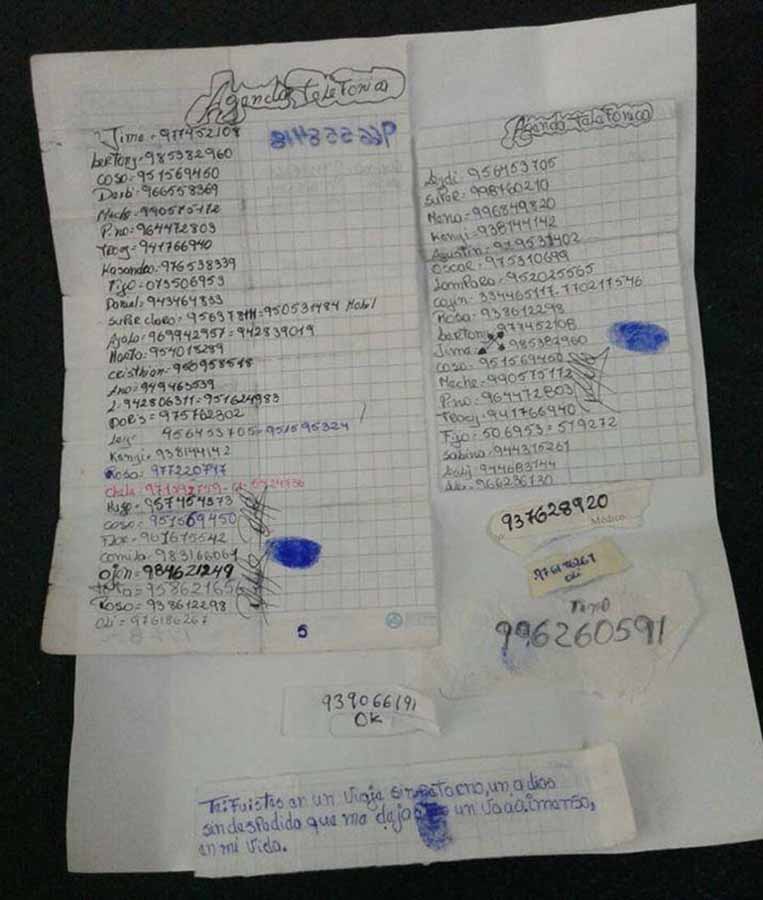 Agenda Telefonica
Jimo = 977452108
bertony = 985382960
coso = 951569450
Darb = 966558369
Meche = 990575172
P.no = 964472803
Trocy = 941766940
Kasandra = 976538339
Fijo = 073506953
943464833
super claro = 950531484 Mobil
Ayala = 969942957 = 942839019
954018289
cristhion =
949463539
2. 942806311 = 951624983
DORS = 975762302
956453705 = 951595324
Kenyi = 938144142
Rosa = 977220717
Chela =
Hugo = 957454373
coso = 951569450
Flor = 961675542
Camila = 983166064
Ojen = 984621249
Roso = 938612298
Oli = 976186267
5
Agenda Telefonico
Leydi = 956453705
super = 998760210
Mano = 996849820
Kenyi = 938144142
Agustin = 979531402
Oscar = 975310699
Lamparo = 952025565
cojin = 334465117 - 770217546
Rosa = 938612298
bertony 977452108
Jimo 985382960
coso = 951569450
Meche = 990575172
P.no = 964472803
Trocy = 941766940
Fijo = 506953 = 519272
Sabina = 944315261
944683144
966236130
937628920
Médico
976186267
Oli
996260591
939066191
OK
en un viaje sin retorno, un adios
sin despedida que me dejo un vacio inmenso,
en mi vida.